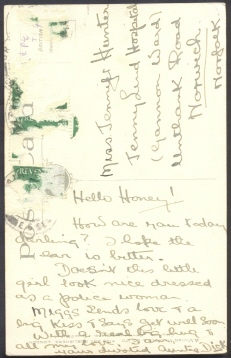 Miss Jennify Hunter
Jenny Lind Hospital
(Gannon Ward)
Unthank Road
Norwich
Norfolk
post card
Hello Honey!
How are you today
darling? I hope the
ear is better.
Doesn't this little
girl look nice dressed
as a police woman.
Miggs sends love & a
big kiss & says get well soon
with a real big hug &
all my love I am
your devoted Aunty Dick